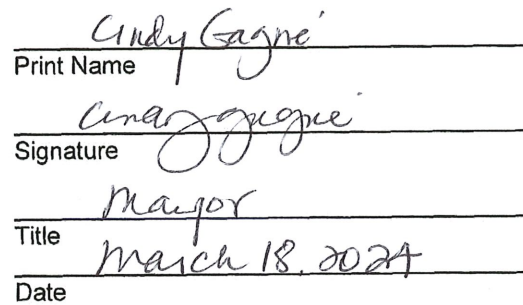 Cindy Gagné
Print Name
Cindy Gagné
Signature
Mayor
Title
March 18, 2024
Date